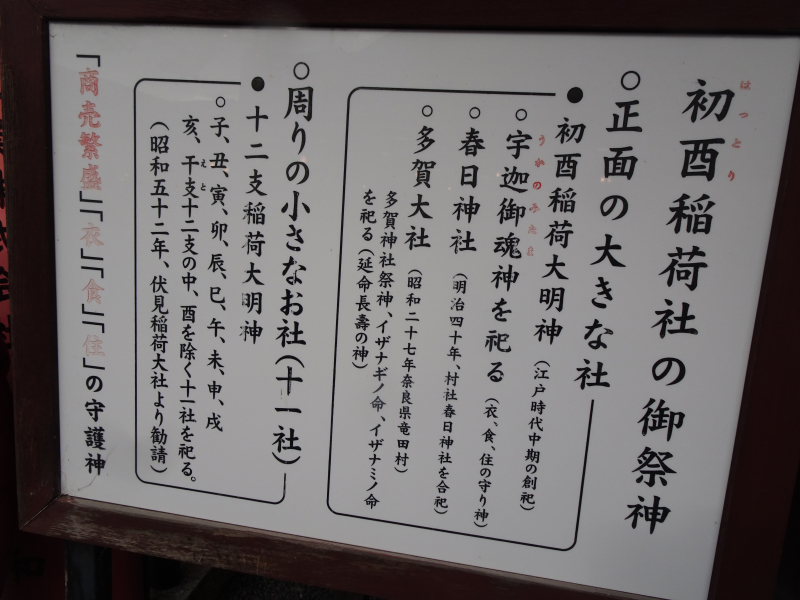 初酉稲荷社の御祭神
はつとり
○正面の大きな社
●初酉稲荷大明神(江戸時代中期の創祀)
○宇迦御魂神を祀る(衣、食、住の守り神)
うかのみたま
○春日神社(明治四十年、村社春日神社を合祀)
○多賀大社(昭和二十七年奈良県竜田村)
多賀神社祭神、イザナギノ命、イザナミノ命
を祀る(延命長壽の神)
○周りの小さなお社(十一社)
●十二支稲荷大明神
○子、丑、寅、卯、辰、巳、午、未、申、戌
亥、干支十二支の中、酉を除く十一社を祀る。
えと
(昭和五十二年、伏見稲荷大社より勧請)
「商売繁盛」「衣」「食」「住」の守護神